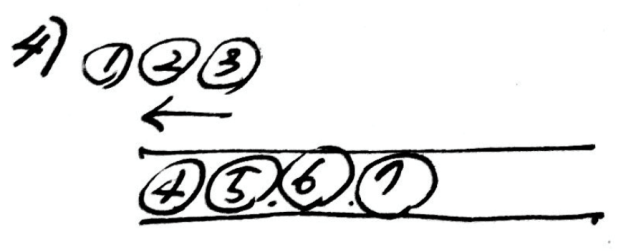 4) ① ② ③
④ ⑤ . ⑥ . ⑦